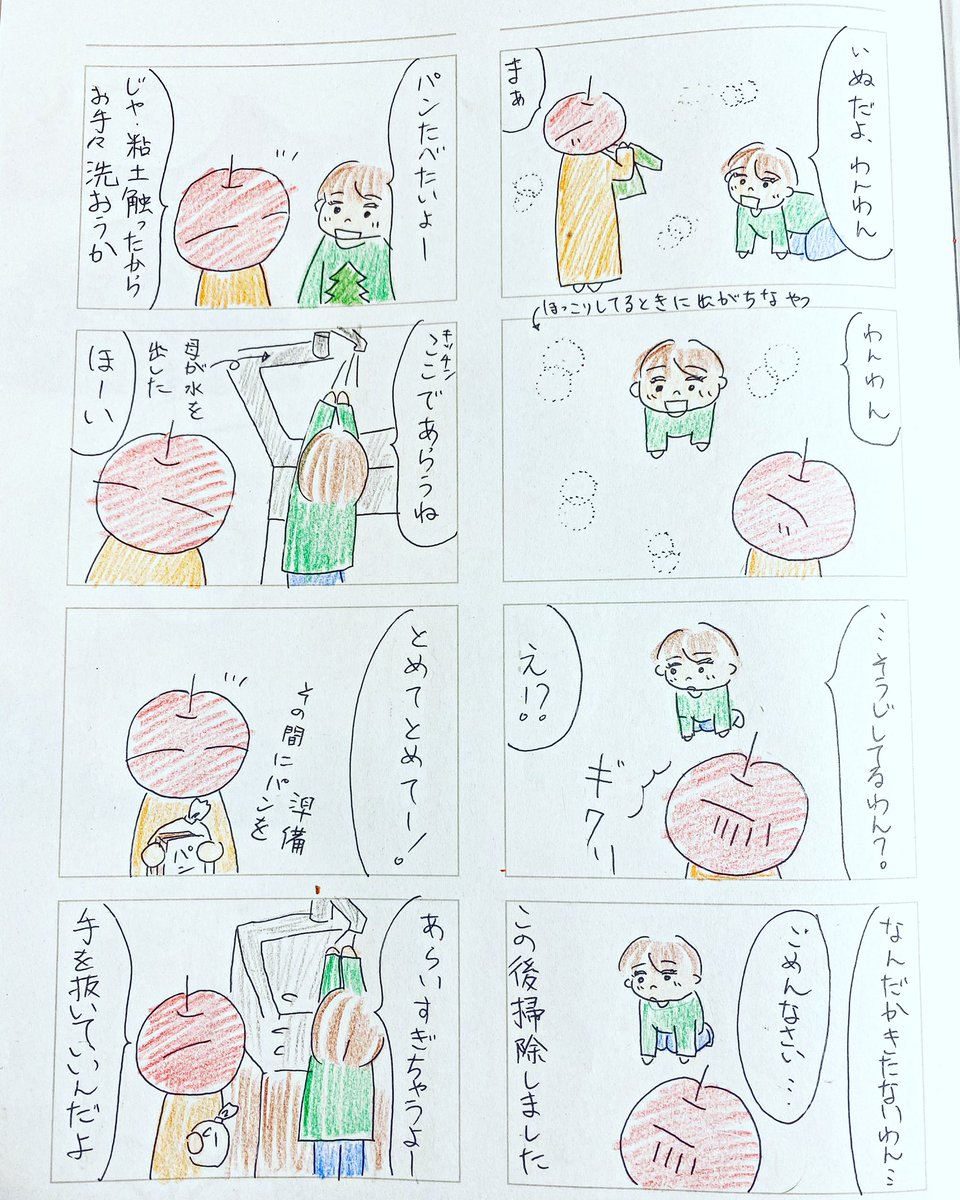 いぬだよ、わんわん
まぁ
ほっこりしてるときに出がちなやつ
わんわん
…そうじしてるわん?
え!?
ギクリ
なんだかきたないわん…
ごめんなさい…
この後掃除しました
パンたべたいよー
じゃ、粘土触ったから
お手々洗おうか
キッチン
ここであらうね
母が水を
出した
ほーい
とめてとめてー!
その間にパンを
準備
パン
あらいすぎちゃうよー
手を抜いていいんだよ